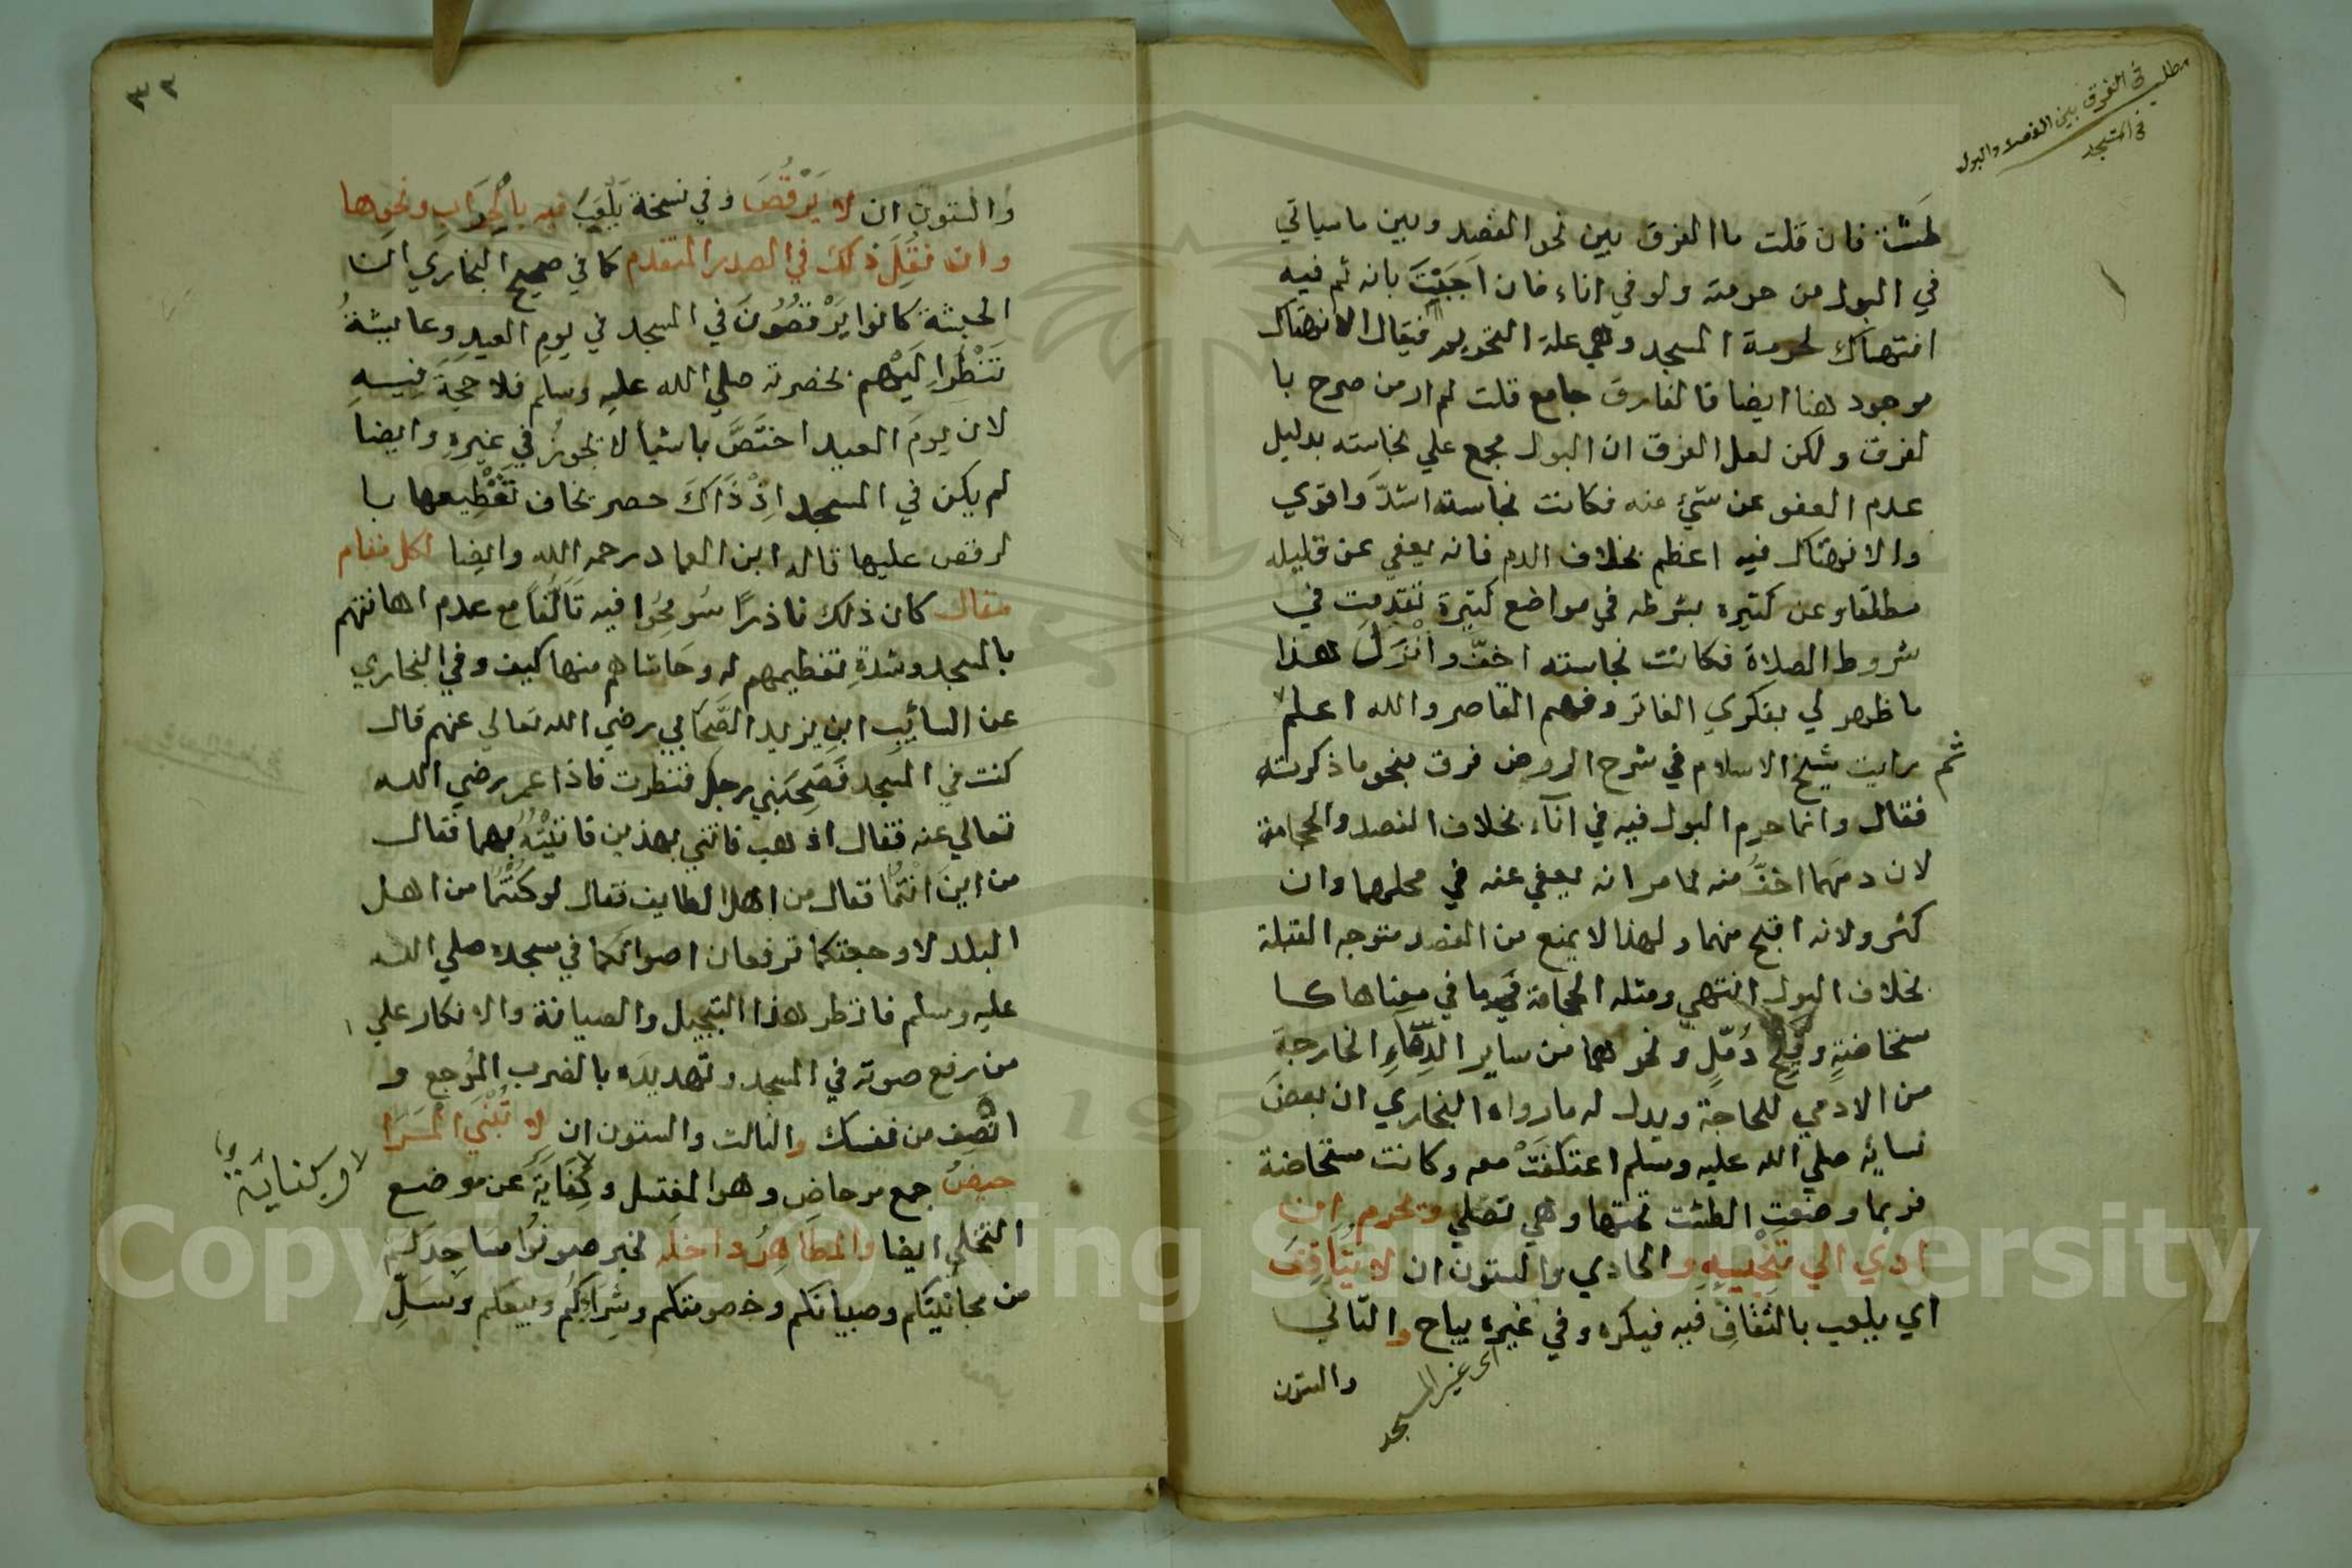 مطلب في الفرق بين الفصد والبول
في المسجد
طشت فان قلت ما الفرق بين نحو الفصد وبين ما سياتي
في البول من حرمته ولو في اناء فان اَجَبْتَ بانه ثم فيه
انتهاك لحرمة المسجد وهي علة التحريم فيقال الانتهاك
موجود هنا ايضا فالفارق جامع قلت لم ار من صرح با
لفرق ولكن لعل الفرق ان البول مجمع علي نجاسته بدليل
عدم العفو عن شيٍ منه فكانت نجاسته اشدّ واقوي
والانتهاك فيه اعظم بخلاف الدم فانه يعفي عن قليله
مطلقا وعن كثيره بشرطه في مواضع كثيرة تقدمت في
شروط الصلاة فكانت نجاسته اخفّ وانْزَلَ هذا
ما ظهر لي بفكري الفاتر وفهم القاصر والله اعلم
ثم رايت شيخ الاسلام في شرح الروض فرق بنحو ما ذكرته
فقال وانما حرم البول فيه في اناء بخلاف الفصد والحجامة
لان دمهما اخفّ منه لما مر انه يعفي عنه في محلهما وان
كثر ولانه اقبح منهما ولهذا لا يمنع من الفصد متوجه القبلة
بخلاف البول انتهي ومثله الحجامة في ما في معناها كا
ستحاضةٍ وفتح دُمّلٍ ونحوهما من ساير الدِّمَاءِ الخارجة
من الادمي للحاجة ويدل له ما رواه البخاري ان بعضَ
نسايِه صلي الله عليه وسلم اعتكفَتْ معه وكانت مستحاضة
فربما وضعتِ الطشت تحتها وهي تصلي وتحرم اِن
ادي الي تنجيسِهِ والحادي والستون ان لا يُثَاقِفَ
اي يلعب بالثقافِ فيه فيكره وفي غيره يباح والثاني
اي غير المسجد
والستون
٣٢
والستون ان لا يَرْقُصَ وفي نسخة يَلْعَبَ فيه بالحِرَابِ ونحوها
وان نُقِلَ ذلك في الصدر المتقدم كما في صحيح البخاري ان
الحبشة كانوا يَرْقصُونَ في المسجد في يومِ العيدِ وعايشةُ
تَنْظُر اِلَيْهم بحضرته صلي الله عليه وسلم فلا حجةَ فيه
لان يومَ العيد اختَصَّ باشيا لا تجوزُ في غيرهِ وايضا
لم يكن في المسجد اِذْ ذَاكَ حصر يخاف تَقْطِيعها با
لرقص عليها قاله ابن العماد رحمه الله وايضا لكل مقام
مقال كان ذلك نادرًا سُومِحُوا فيه تَالُّفًا مع عدم اهانتهم
بالمسجد وشدةِ تعظيمهم له وحَاشاهم منها كيف وفي البخاري
عن السائِبِ ابنِ يزيد الصَّحابي رضي الله تعالي عنهم قال
كنت في المسجد فَحَصَبَنِي رجل فنظرت فاذا عمر رضي الله
تعالي عنه فقال اذهب فاتني بهذين فاتَيْتُهُ بهما فقال
من اين انتُمَا فقال من اهل الطايف فقال لو كنتُمَا من اهل
البلد لاوجعتكما ترفعان اصواتكما في مسجده صلي الله
عليه وسلم فانظر هذا التبجيل والصيانة والانكار علي
من رفع صوته في المسجد وتهديدَه بالضرب المُوجِع و
انصِف من نفسك والثالث والستون ان لا تُبْنَي المَرَا
حيضُ جمع مرحاضٍ وهو المغتسل وكِفَايَةَ عن موضع
لا وكناية
التخلي ايضا والمَطَاهِرُ داخله لخبر صونُوا مساجِدَكم
من مجانِينكم وصبيانكم وخصومتكم وشِرَاءِكُم وبيعكم وَسَلِّ